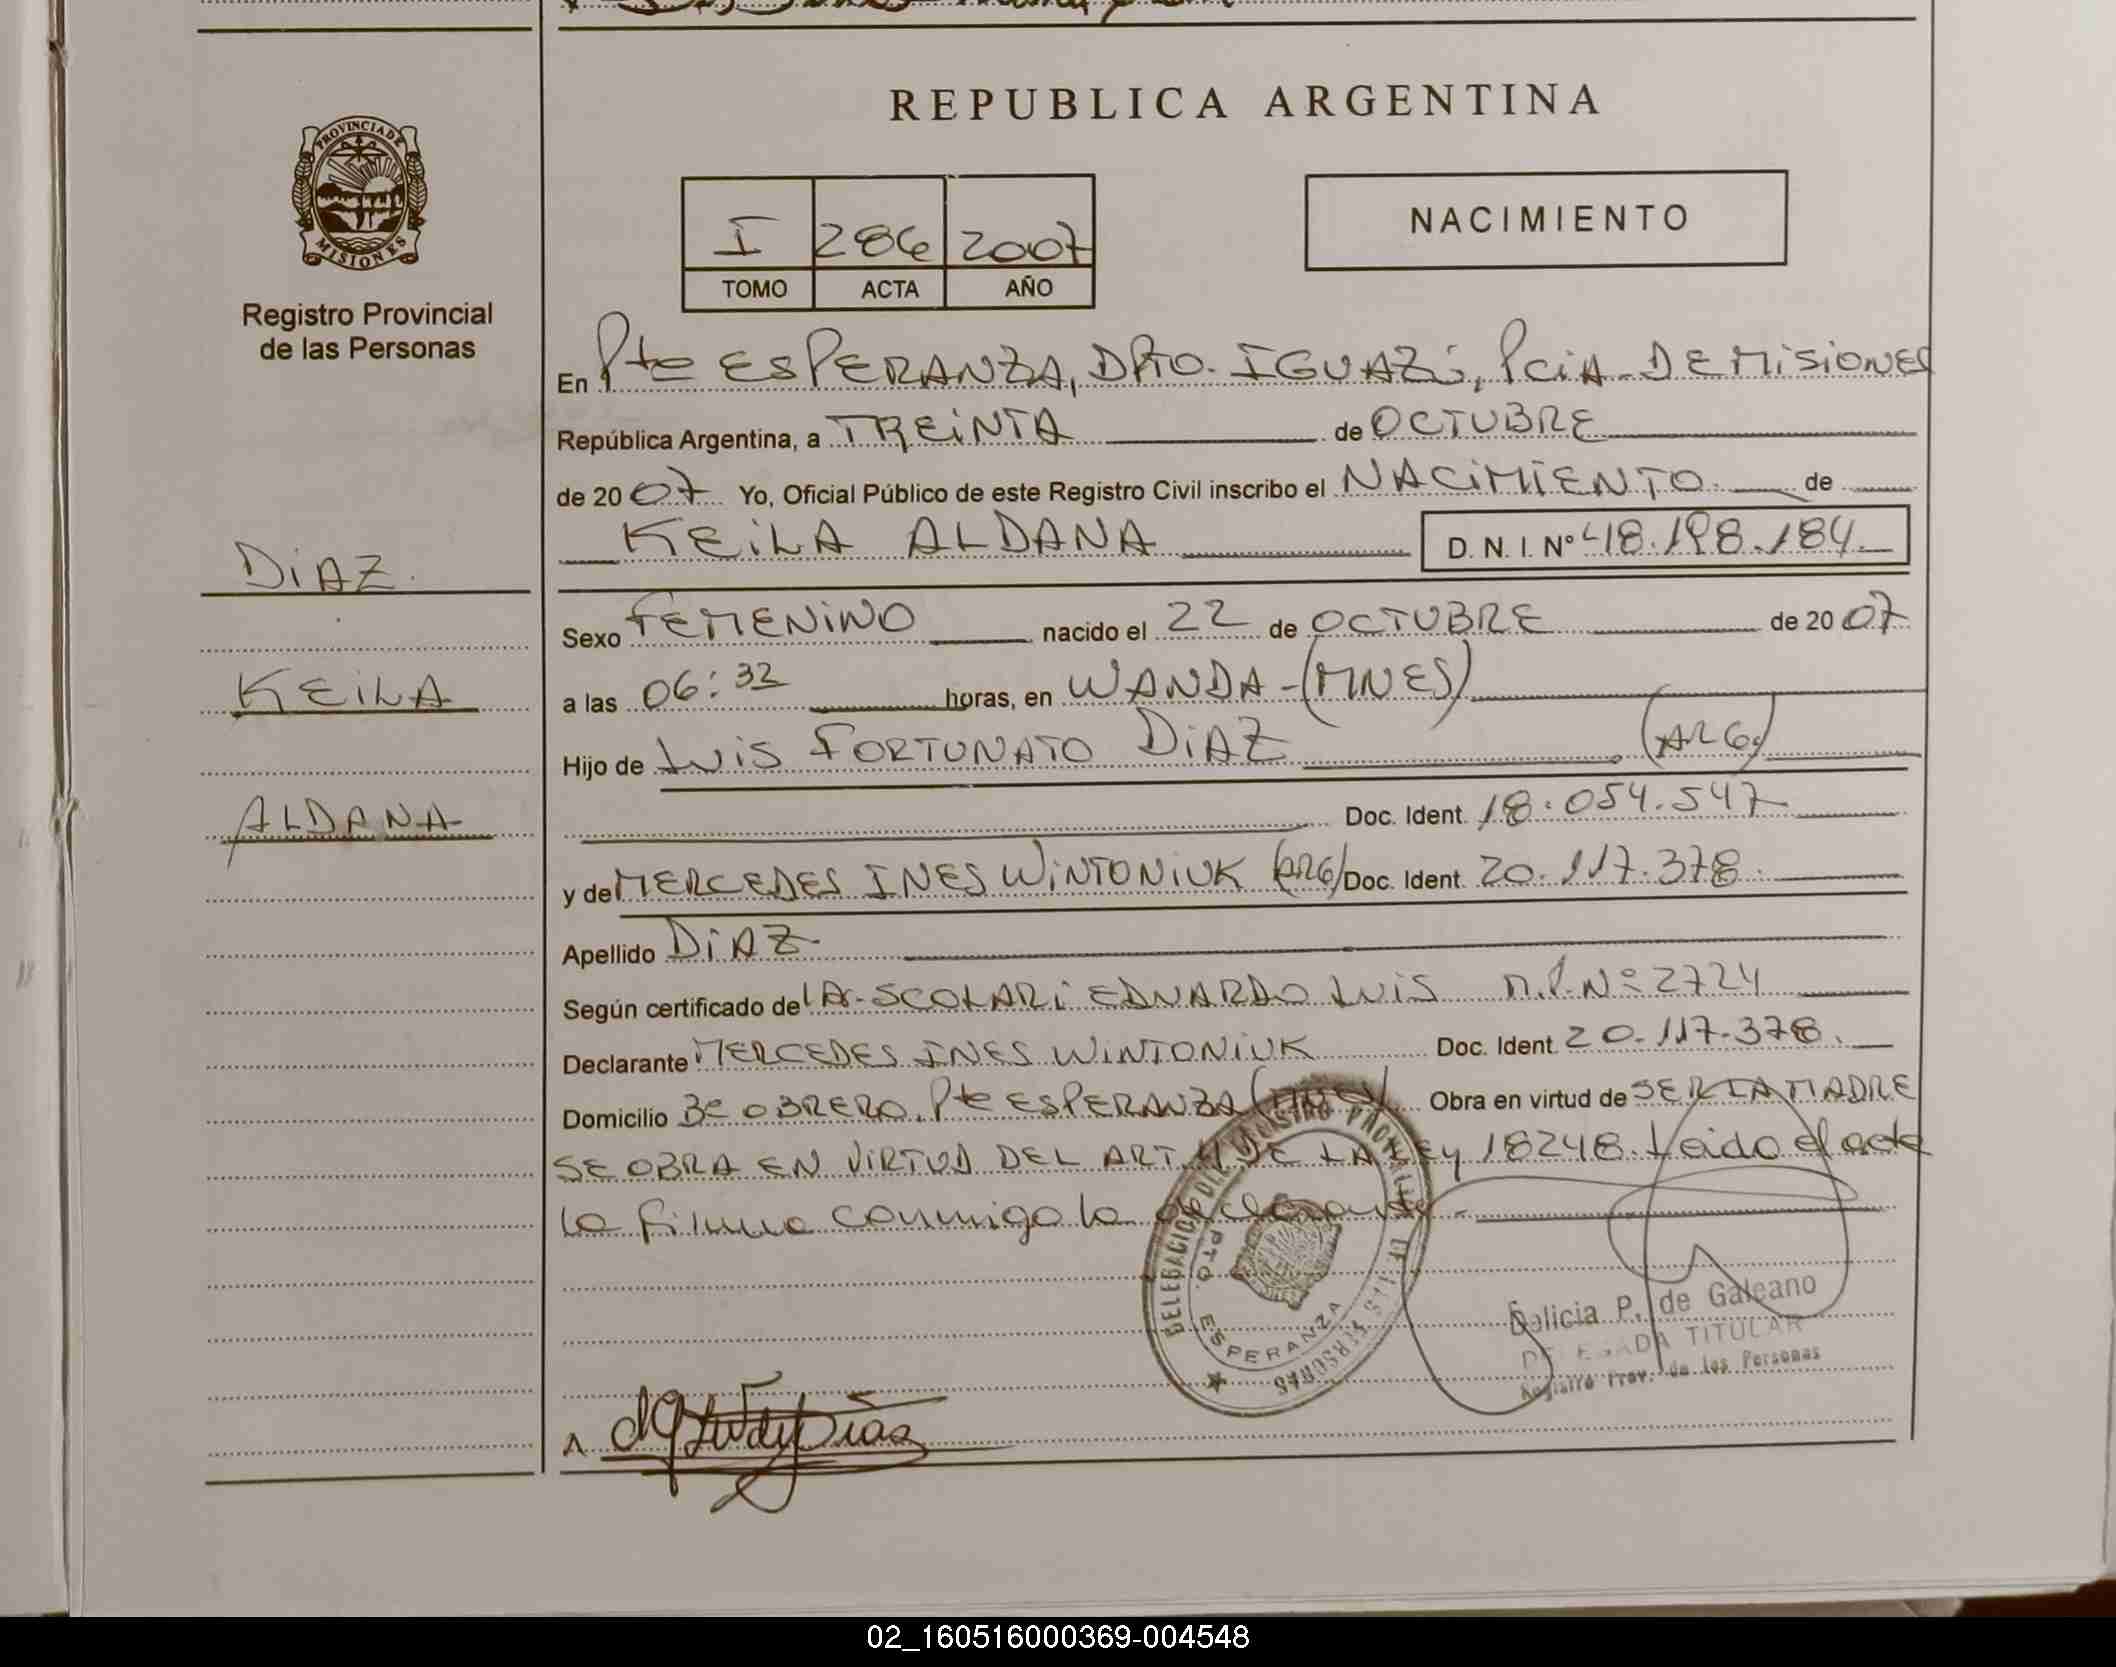 REPUBLICA ARGENTINA
PROVINCIA DE
MISIONES
Registro Provincial
de las Personas
I 286 2007
TOMO ACTA AÑO
NACIMIENTO
En Pte ESPERANZA, DPTO. IGUAZÚ, PciA. DE MISIONES
República Argentina, a TREINTA de OCTUBRE
de 2007 Yo, Oficial Público de este Registro Civil inscribo el NACIMIENTO de
KEILA ALDANA D. N. I. Nº 48.198.184.
DIAZ
KEILA
ALDANA
Sexo FEMENINO nacido el 22 de OCTUBRE de 2007
a las 06:32 horas, en WANDA-(MNES)
Hijo de LUIS FORTUNATO DIAZ (ARG.)
Doc. Ident. 18.054.547
y de MERCEDES INES WINTONIUK (ARG) Doc. Ident. 20.117.378.
Apellido DIAZ
Según certificado del DR. SCOLARI EDUARDO LUIS M.P. Nº 2724
Declarante MERCEDES INES WINTONIUK Doc. Ident. 20.117.378.
Domicilio Bº OBRERO. Pte ESPERANZA (MNES) Obra en virtud de SER LA MADRE
SE OBRA EN VIRTUD DEL ART. 4 DE LA LEY 18248. Leido el acta
la firma conmigo la declarante.-
DELEGACION REGISTRO PROVINCIAL DE LAS PERSONAS
PTO. ESPERANZA
Delicia P. de Galeano
DELEGADA TITULAR
Registro Prov. de las Personas
02_160516000369-004548